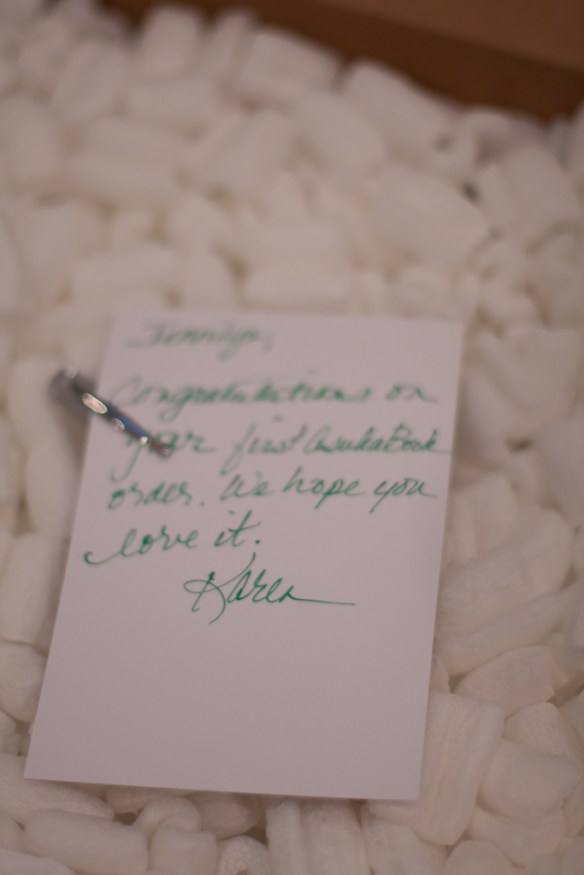 Jennilyn,
Congratulations on
your first AsukaBook
order. We hope you
love it.
Karen